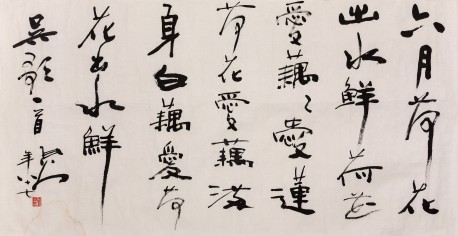 六月荷花
出水鮮荷花
愛藕〻愛蓮
荷花愛藕
身白藕愛荷
花出水鮮
吳歌一首
年八七